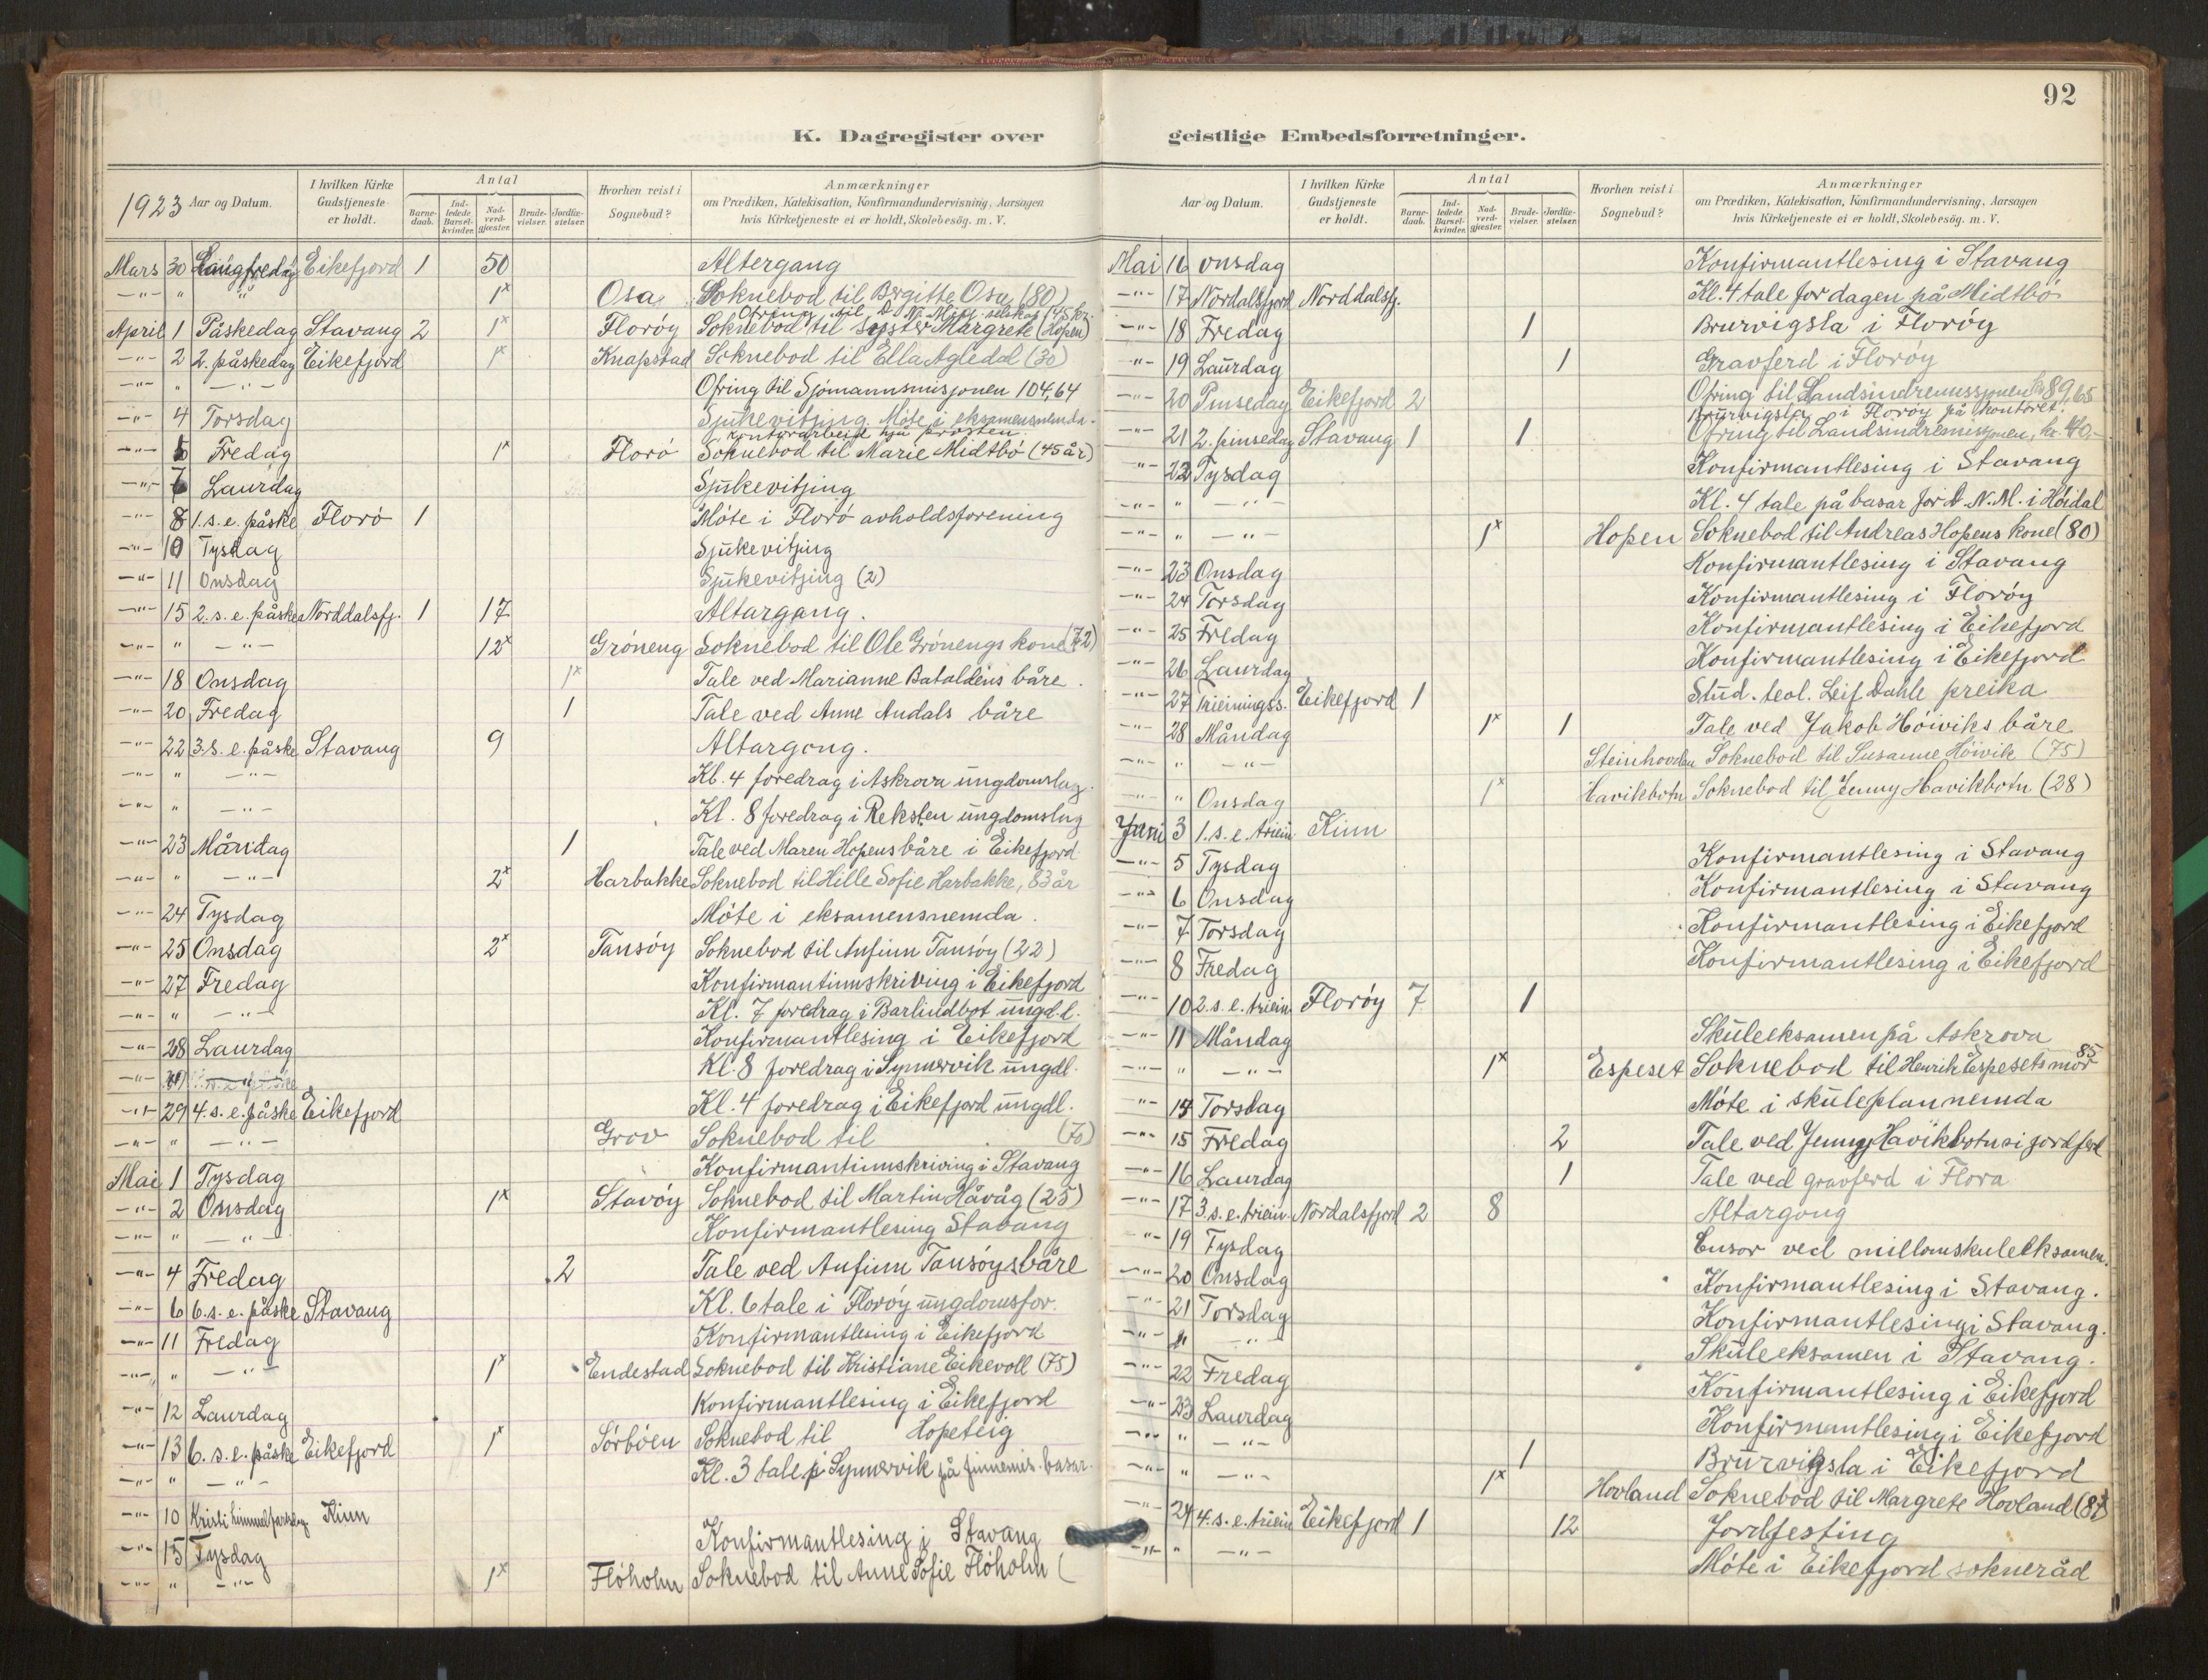 92
K. Dagregister over geistlige Embedsforretninger.
1923 Aar og Datum. I hvilken Kirke Gudstjeneste er holdt. Antal Barnedaab. Indledede Barselkvinder. Nadverdgjæster. Brudevielser. Jordfæstelser. Hvorhen reist i Sognebud? Anmærkninger om Prædiken, Katekisation, Konfirmandundervisning, Aarsagen hvis Kirketjeneste ei er holdt, Skolebesög. m. V.
Mars 30 Langfredag Eikefjord 1 50 Altergang
-"- " " 1x Osa Soknebod til Bergitte Osa (80)
Ofring til D. N. Misj. selskap (45 kr.
April 1 Påskedag Stavang 2 1x Florøy Soknebod til syster Margrete (Hopen)
-"- 2 2. påskedag Eikefjord 1x Knapstad Soknebod til Ella Agledal (30)
-"- " -"- Ofring til Sjømannsmisjonen 104,64
-"- 4 Torsdag Sjukevitjing. Møte i eksamensnemda.
Kontorarbeid hjå prosten
-"- 6 Fredag 1x Florø Soknebod til Marie Midtbø (45 år)
-"- 7 Laurdag Sjukevitjing
-"- 8 1. s. e. påske Florø 1 Møte i Florø avholdsforening
-"- 10 Tysdag Sjukevitjing
-"- 11 Onsdag Sjukevitjing (2)
-"- 15 2. s. e. påske Norddalsfj. 1 17 Altargang.
-"- " -"- 12x Grøneng Soknebod til Ole Grønengs kone (72)
-"- 18 Onsdag 1x Tale ved Marianne Bataldens båre.
-"- 20 Fredag 1 Tale ved Anne Andals båre
-"- 22 3. s. e. påske Stavang 9 Altargong.
-"- " -"- Kl. 4 foredrag i Askrova ungdomslag.
-"- " -"- Kl. 8 foredrag i Reksten ungdomslag
-"- 23 Måndag 1 Tale ved Maren Hopens båre i Eikefjord.
-"- " -"- 2x Harbakke Soknebod til Hille Sofie Harbakke, 83 år
-"- 24 Tysdag Møte i eksamensnemda.
-"- 25 Onsdag 2x Tansøy Soknebod til Anfinn Tansøy (22)
-"- 27 Fredag Konfirmantinnskriving i Eikefjord
-"- " -"- Kl. 7 foredrag i Barlindbot ungd.l.
-"- 28 Laurdag Konfirmantlesing i Eikefjord
-"- Kl. 8 foredrag i Synnervik ungdl.
-"- 29 4. s. e. påske Eikefjord Kl. 4 foredrag i Eikefjord ungdl.
-"- " -"- Grov Soknebod til (70)
Mai 1 Tysdag Konfirmantinnskriving i Stavang
-"- 2 Onsdag 1x Stavøy Soknebod til Martin Håvåg (25)
-"- " -"- Konfirmantlesing Stavang
-"- 4 Fredag 2 Tale ved Anfinn Tansøys båre
-"- 6 6. s. e. påske Stavang Kl. 6 tale i Florøy ungdomsfor.
-"- 11 Fredag Konfirmantlesing i Eikefjord
-"- " -"- 1x Endestad Soknebod til Kristiane Eikevoll (75)
-"- 12 Laurdag Konfirmantlesing i Eikefjord
-"- 13 6. s. e. påske Eikefjord 1x Sørbøen Soknebod til Hopeteig
-"- " -"- Kl. 3 tale på Synnervik på finnemis. basar.
-"- 10 Kristi himmelfartsdag Kinn
-"- 15 Tysdag Konfirmantlesing i Stavang
-"- " -"- 1x Fløholm Soknebod til Anne Sofie Fløholm (
Aar og Datum. I hvilken Kirke Gudstjeneste er holdt. Antal Barnedaab. Indledede Barselkvinder. Nadverdgjæster. Brudevielser. Jordfæstelser. Hvorhen reist i Sognebud? Anmærkninger om Prædiken, Katekisation, Konfirmandundervisning, Aarsagen hvis Kirketjeneste ei er holdt, Skolebesög. m. V.
Mai 16 onsdag Konfirmantlesing i Stavang
-"- 17 Nordalsfjord Norddalsfj. Kl. 4 tale for dagen på Midtbø
-"- 18 Fredag 1 Brurvigsla i Florøy
-"- 19 Laurdag 1 Gravferd i Florøy
-"- 20 Pinsedag Eikefjord 2 Ofring til Landsindremissjonen kr 89,65
Brurvigsla i Florøy på kontoret.
-"- 21 2. pinsedag Stavang 1 1 Ofring til Landsindremisjonen, kr. 40,-
-"- 22 Tysdag Konfirmantlesing i Stavang
-"- " -"- Kl. 4 tale på basar for D. N. M. i Høidal
-"- " -"- 1x Hopen Soknebod til Andreas Hopens kone (80)
-"- 23 Onsdag Konfirmantlesing i Stavang
-"- 24 Torsdag Konfirmantlesing i Florøy
-"- 25 Fredag Konfirmantlesing i Eikefjord
-"- 26 Laurdag Konfirmantlesing i Eikefjord
-"- 27 Trieiningss. Eikefjord 1 Stud. teol. Leif Dahle preika
-"- 28 Måndag 1x 1 Tale ved Jakob Høiviks båre
-"- " -"- Steinhovden Soknebod til Susanne Høivik (75)
-"- " Onsdag 1x Havikbotn Soknebod til Jenny Havikbotn (28)
Juni 3 1. s. e. triein. Kinn
-"- 5 Tysdag Konfirmantlesing i Stavang
-"- 6 Onsdag Konfirmantlesing i Stavang
-"- 7 Torsdag Konfirmantlesing i Eikefjord
-"- 8 Fredag Konfirmantlesing i Eikefjord
-"- 10 2. s. e. triein. Florøy 7 1
-"- 11 Måndag Skuleeksamen på Askrova
-"- " -"- 1x Espeset Soknebod til Henrik Espesets mor 85
-"- 14 Torsdag Møte i skuleplannemda
-"- 15 Fredag 2 Tale ved Jenny Havikbotns i jordferd
-"- 16 Laurdag 1 Tale ved gravferd i Flora
-"- 17 3. s. e. triein. Nordalsfjord 2 8 Altargong
-"- 19 Tysdag Censor ved millomskuleeksamen.
-"- 20 Onsdag Konfirmantlesing i Stavang.
-"- 21 Torsdag Konfirmantlesing i Stavang.
-"- " -"- Skuleeksamen i Stavang.
-"- 22 Fredag Konfirmantlesing i Eikefjord
-"- 23 Laurdag Konfirmantlesing i Eikefjord
-"- " -"- 1 Brurvigsla i Eikefjord
-"- " -"- 1x Hovland Soknebod til Margrete Hovland
-"- 24 4. s. e. triein Eikefjord 1 12 Jordfesting
-"- " -"- Møte i Eikefjord sokneråd